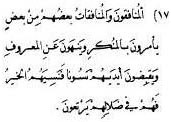 (١٧) المنافقون والمنافقات بعضهم من بعض
يأمرون بالمنكر وينهون عن المعروف
ويقبضون أيديهم نسوا الله فنسيهم
فهم في ضلالهم يرتعون.